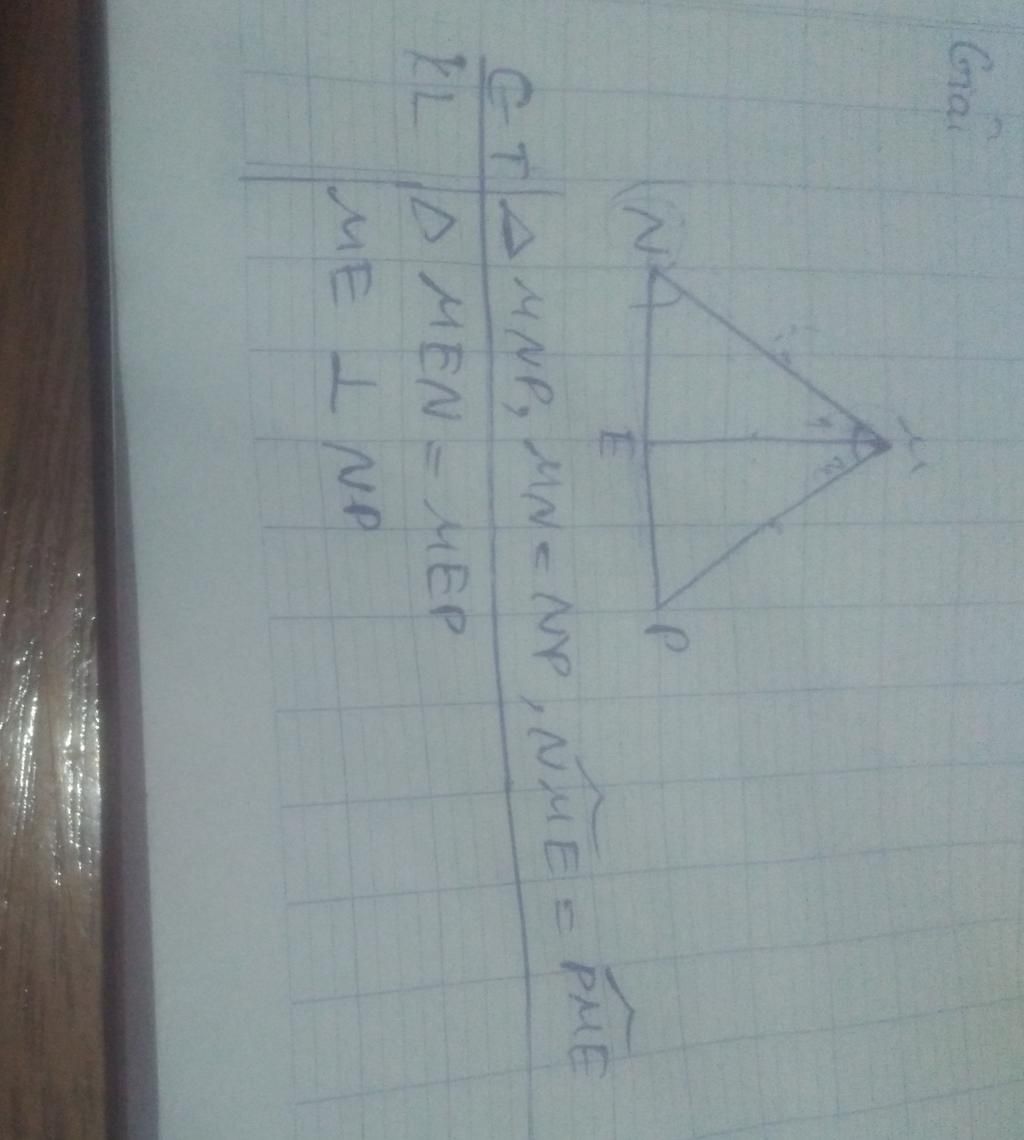 Giải
M
1 2
N E P
GT ΔMNP, MN = NP, \widehat{NME} = \widehat{PME}
KL ΔMEN = MEP
ME ⊥ NP